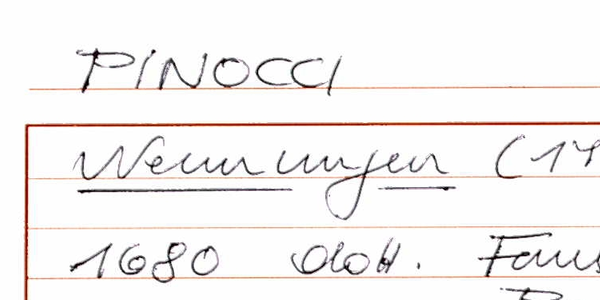 PINOCCI
Wennungen (17
1680 dott. Faus